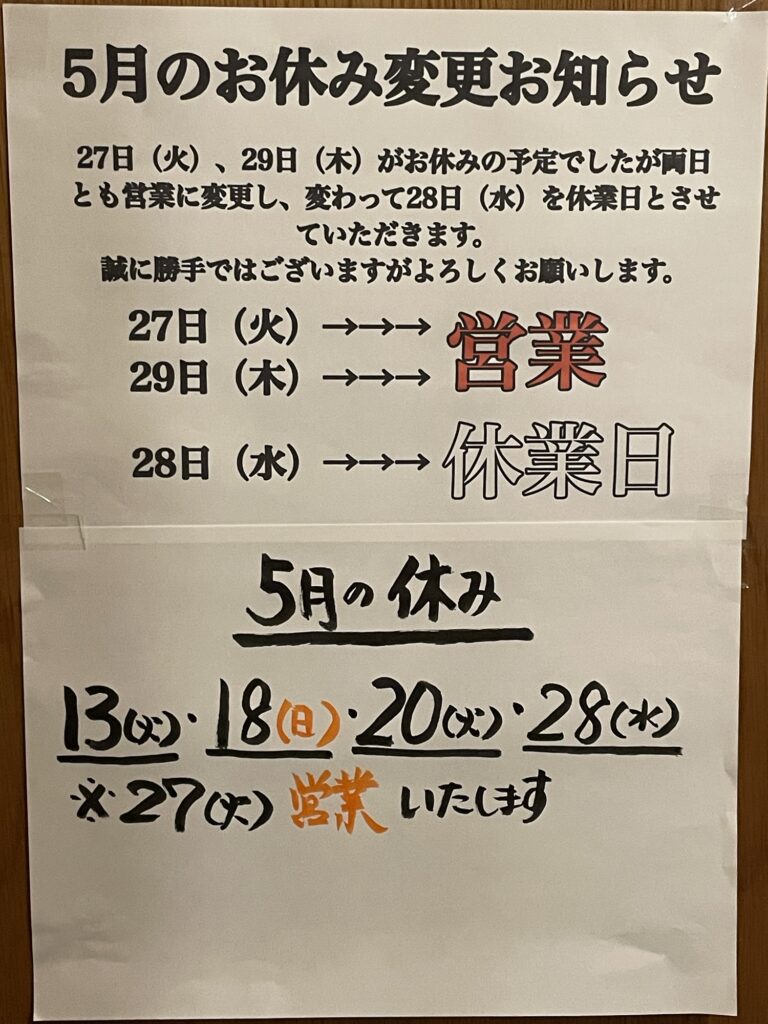 5月のお休み変更お知らせ
27日（火）、29日（木）がお休みの予定でしたが両日
とも営業に変更し、変わって28日（水）を休業日とさせ
ていただきます。
誠に勝手ではございますがよろしくお願いします。
27日（火）→→→ 営業
29日（木）→→→
28日（水）→→→ 休業日
5月の休み
13(火)・18(日)・20(火)・28(水)
※27(火) 営業 いたします